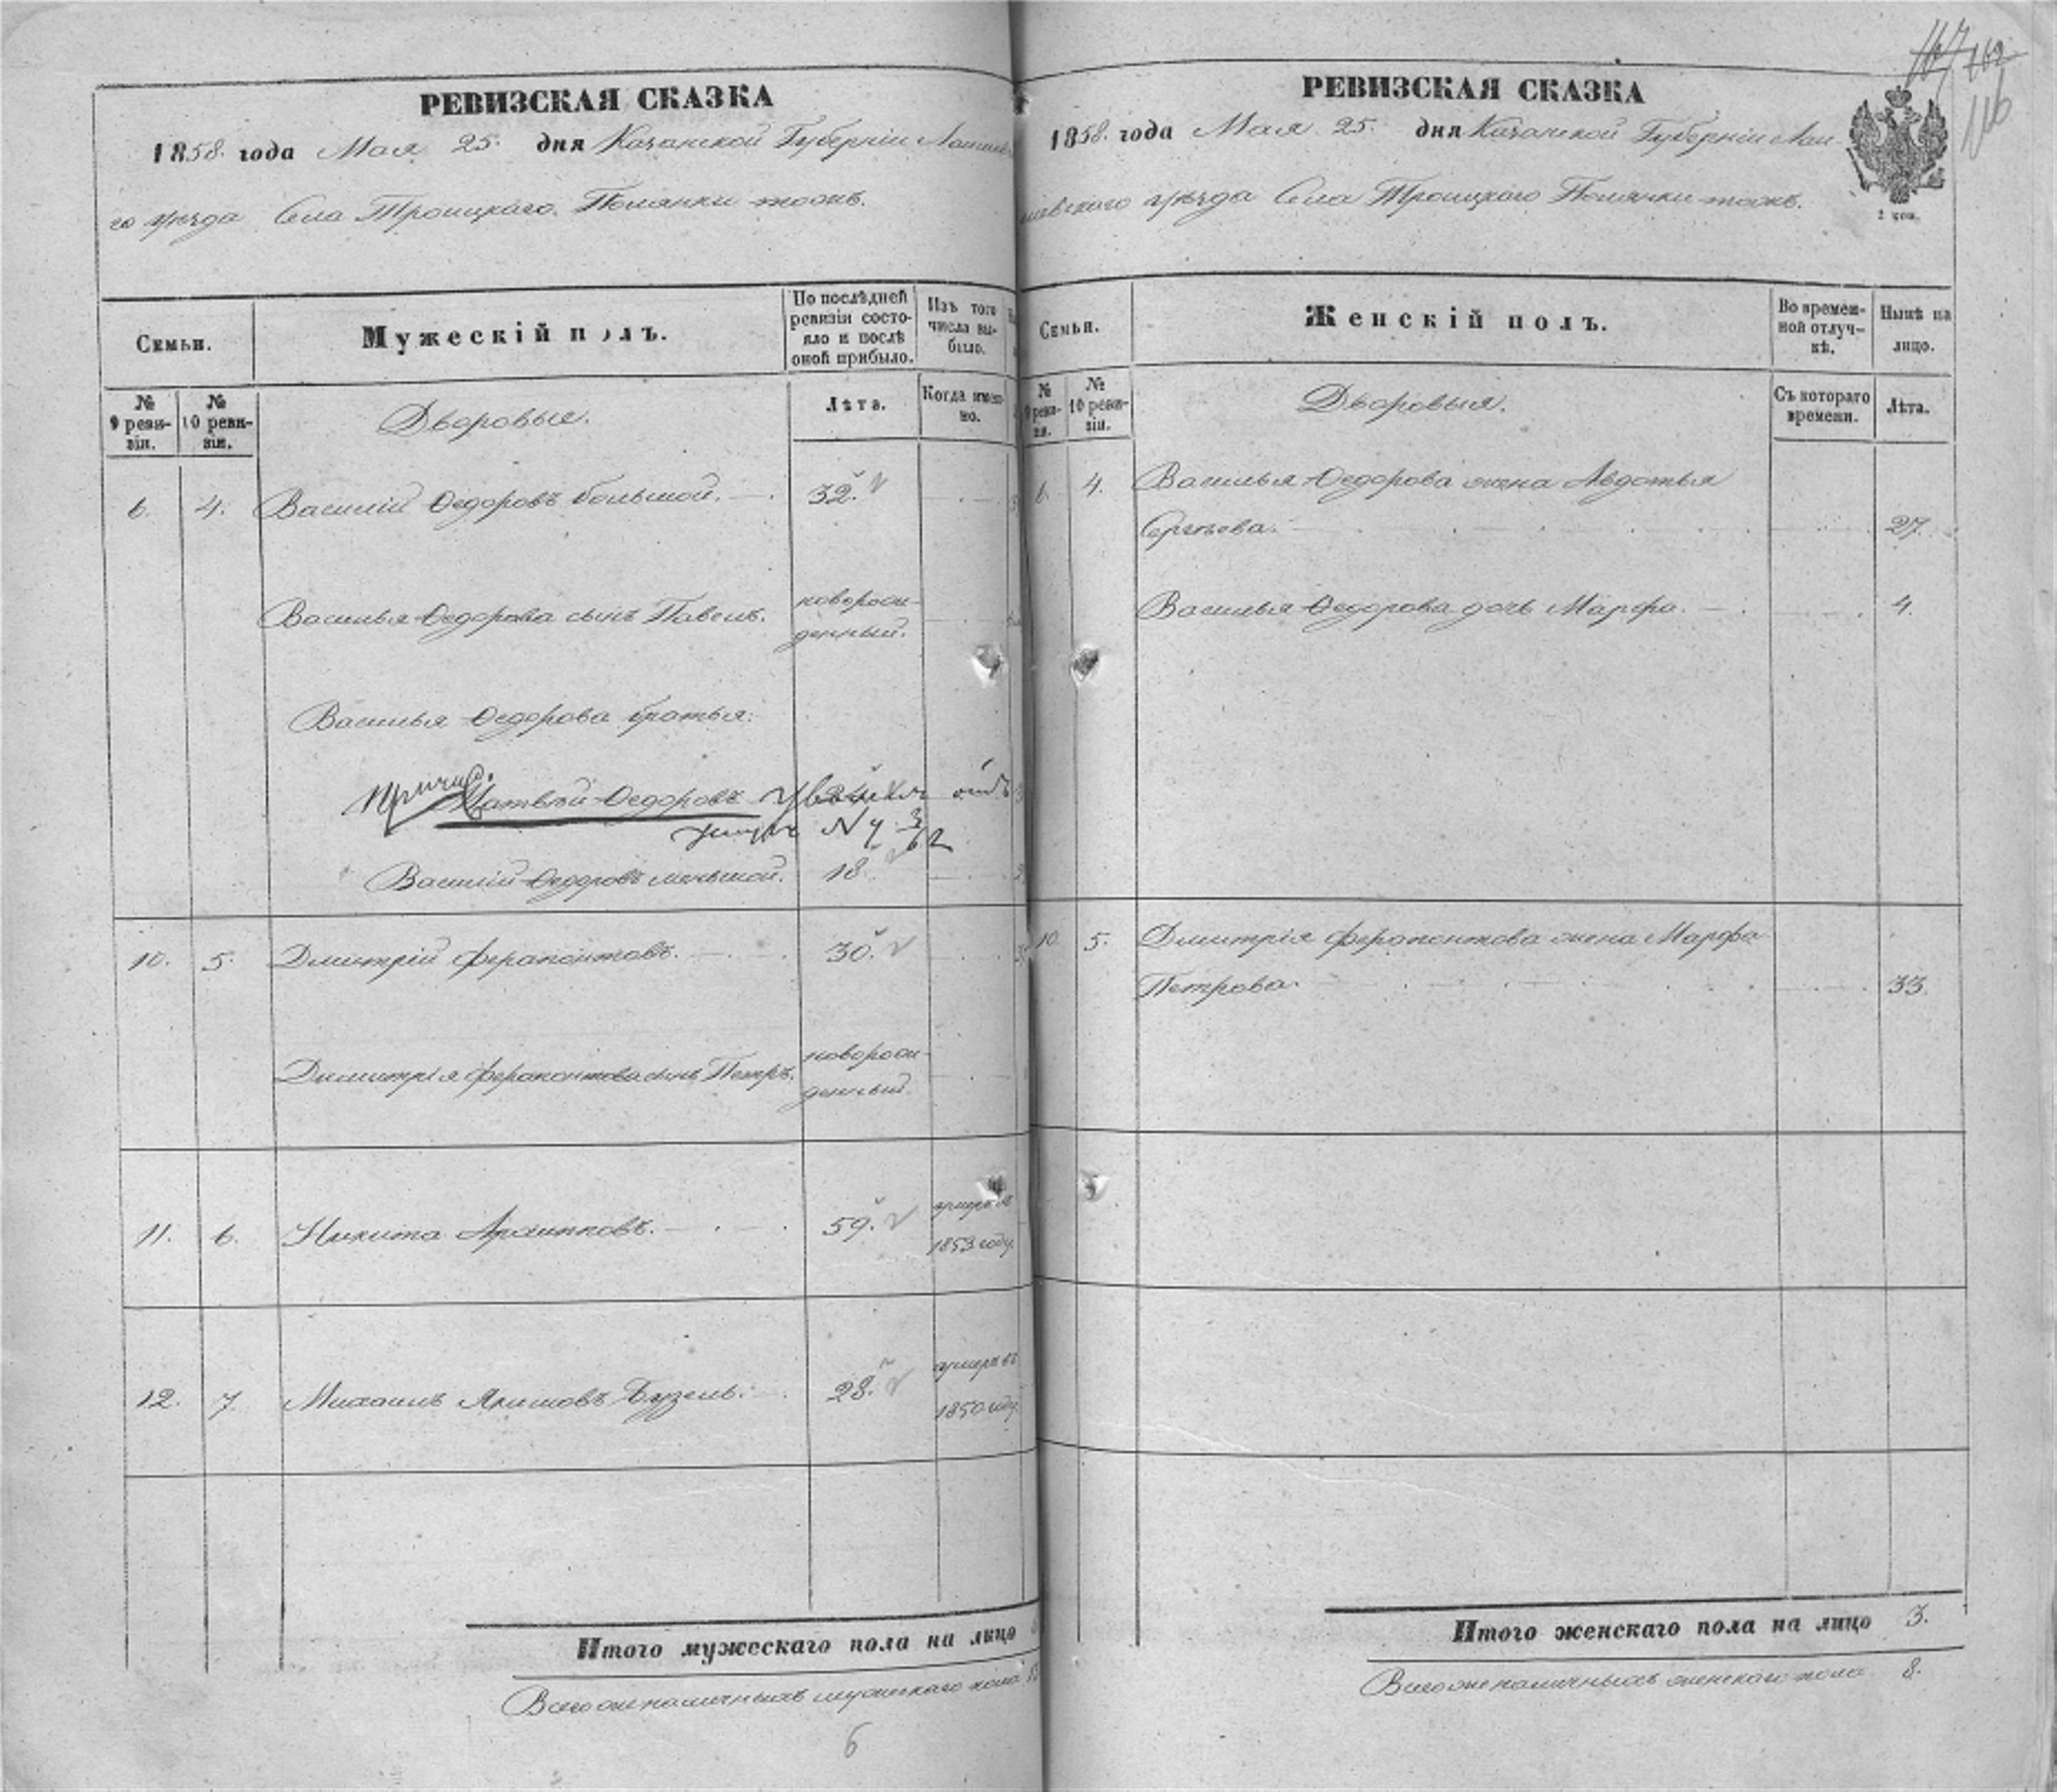 РЕВИЗСКАЯ СКАЗКА
1858. года Мая 25. дня Казанской Губерніи Лаишевс
го уѣзда Села Троицкаго. Полянки тожъ.
Семьи.
Мужескій полъ.
По послѣдней ревизіи состояло и послѣ оной прибыло.
Изъ того числа выбыло.
№ 9 ревизіи.
№ 10 ревизіи.
Дворовые.
Лѣта.
Когда именно.
6. 4. Василій Ѳедоровъ большой. 32.
Василья Ѳедорова сынъ Павелъ. новорожденный.
Василья Ѳедорова братья:
Матвѣй Ѳедоровъ 24
№ 4 3/62
Василій Ѳедоровъ меньшой. 18.
10. 5. Дмитрій Ферапонтовъ. 30.
Димитрія Ферапонтова сынъ Петръ. новорожденный.
11. 6. Никита 59. 1853 году.
12. 7. Михаилъ Якимовъ 28. умеръ въ 1850 году.
Итого мужескаго пола на лицо
Всего же наличныхъ мужескаго пола
6
РЕВИЗСКАЯ СКАЗКА
1858. года Мая 25. дня Казанской Губерніи Лаи-
шевского уѣзда Села Троицкаго Полянки тожъ.
2 коп.
167 162
116
Семьи.
Женскій полъ.
Во временной отлучкѣ.
Нынѣ на лицо.
№ 9 ревизіи.
№ 10 ревизіи.
Дворовыя.
Съ котораго времени.
Лѣта.
6. 4. Василья Ѳедорова жена Авдотья
Сергѣева. 27.
Василья Ѳедорова дочь Марфа. 4.
10. 5. Дмитрія Ферапонтова жена Марфа
Петрова. 33.
Итого женскаго пола на лицо 3.
Всего же наличныхъ женскаго пола 8.